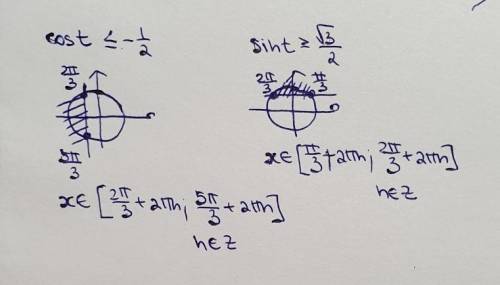 cos t ≤ -1/2
2π/3
5π/3
x ∈ [2π/3 + 2πn; 5π/3 + 2πn]
n ∈ Z
sin t ≥ √3/2
2π/3 π/3
x ∈ [π/3 + 2πn; 2π/3 + 2πn]
n ∈ Z